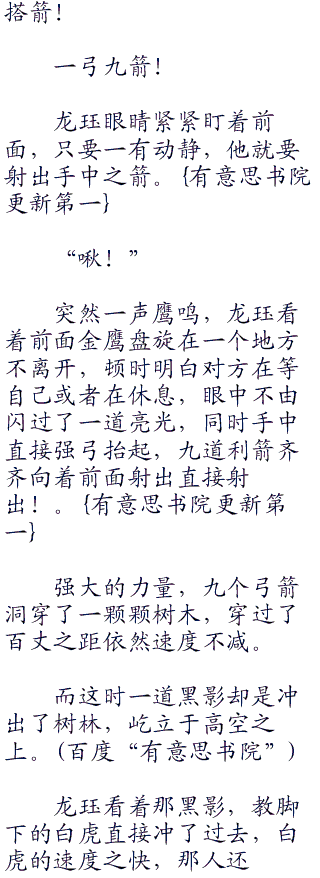 搭箭！
一弓九箭！
龙珏眼睛紧紧盯着前
面，只要一有动静，他就要
射出手中之箭。{有意思书院
更新第一}
“啾！”
突然一声鹰鸣，龙珏看
着前面金鹰盘旋在一个地方
不离开，顿时明白对方在等
自己或者在休息，眼中不由
闪过了一道亮光，同时手中
直接强弓抬起，九道利箭齐
齐向着前面射出直接射
出！。{有意思书院更新第
一}
强大的力量，九个弓箭
洞穿了一颗颗树木，穿过了
百丈之距依然速度不减。
而这时一道黑影却是冲
出了树林，屹立于高空之
上。(百度“有意思书院”)
龙珏看着那黑影，教脚
下的白虎直接冲了过去，白
虎的速度之快，那人还